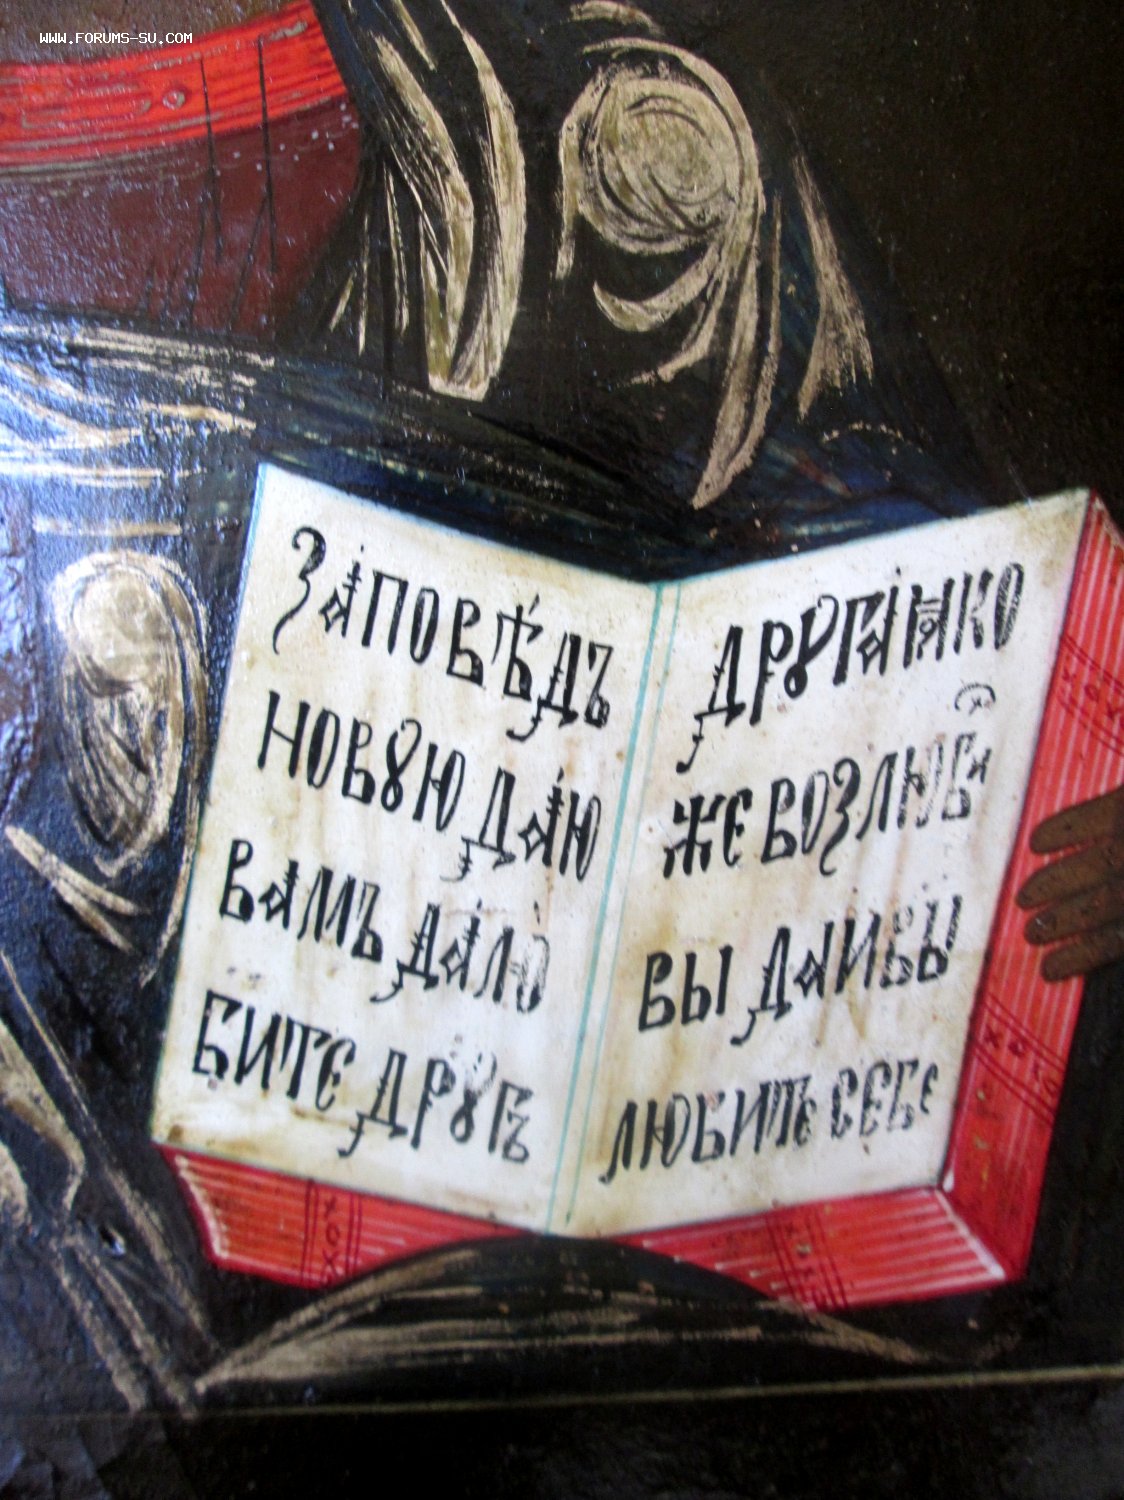 WWW.FORUMS-SU.COM
ЗАПОВѢДЪ
НОВꙊЮ ДАЮ
ВАМЪ ДАЛЮ
БИТЕ ДРꙊГЪ
ДРꙊГА ꙖКО
ЖЕ ВОЗЛЮБИ
ВЫ ДА И ВЫ
ЛЮБИТЕ СЕБЕ